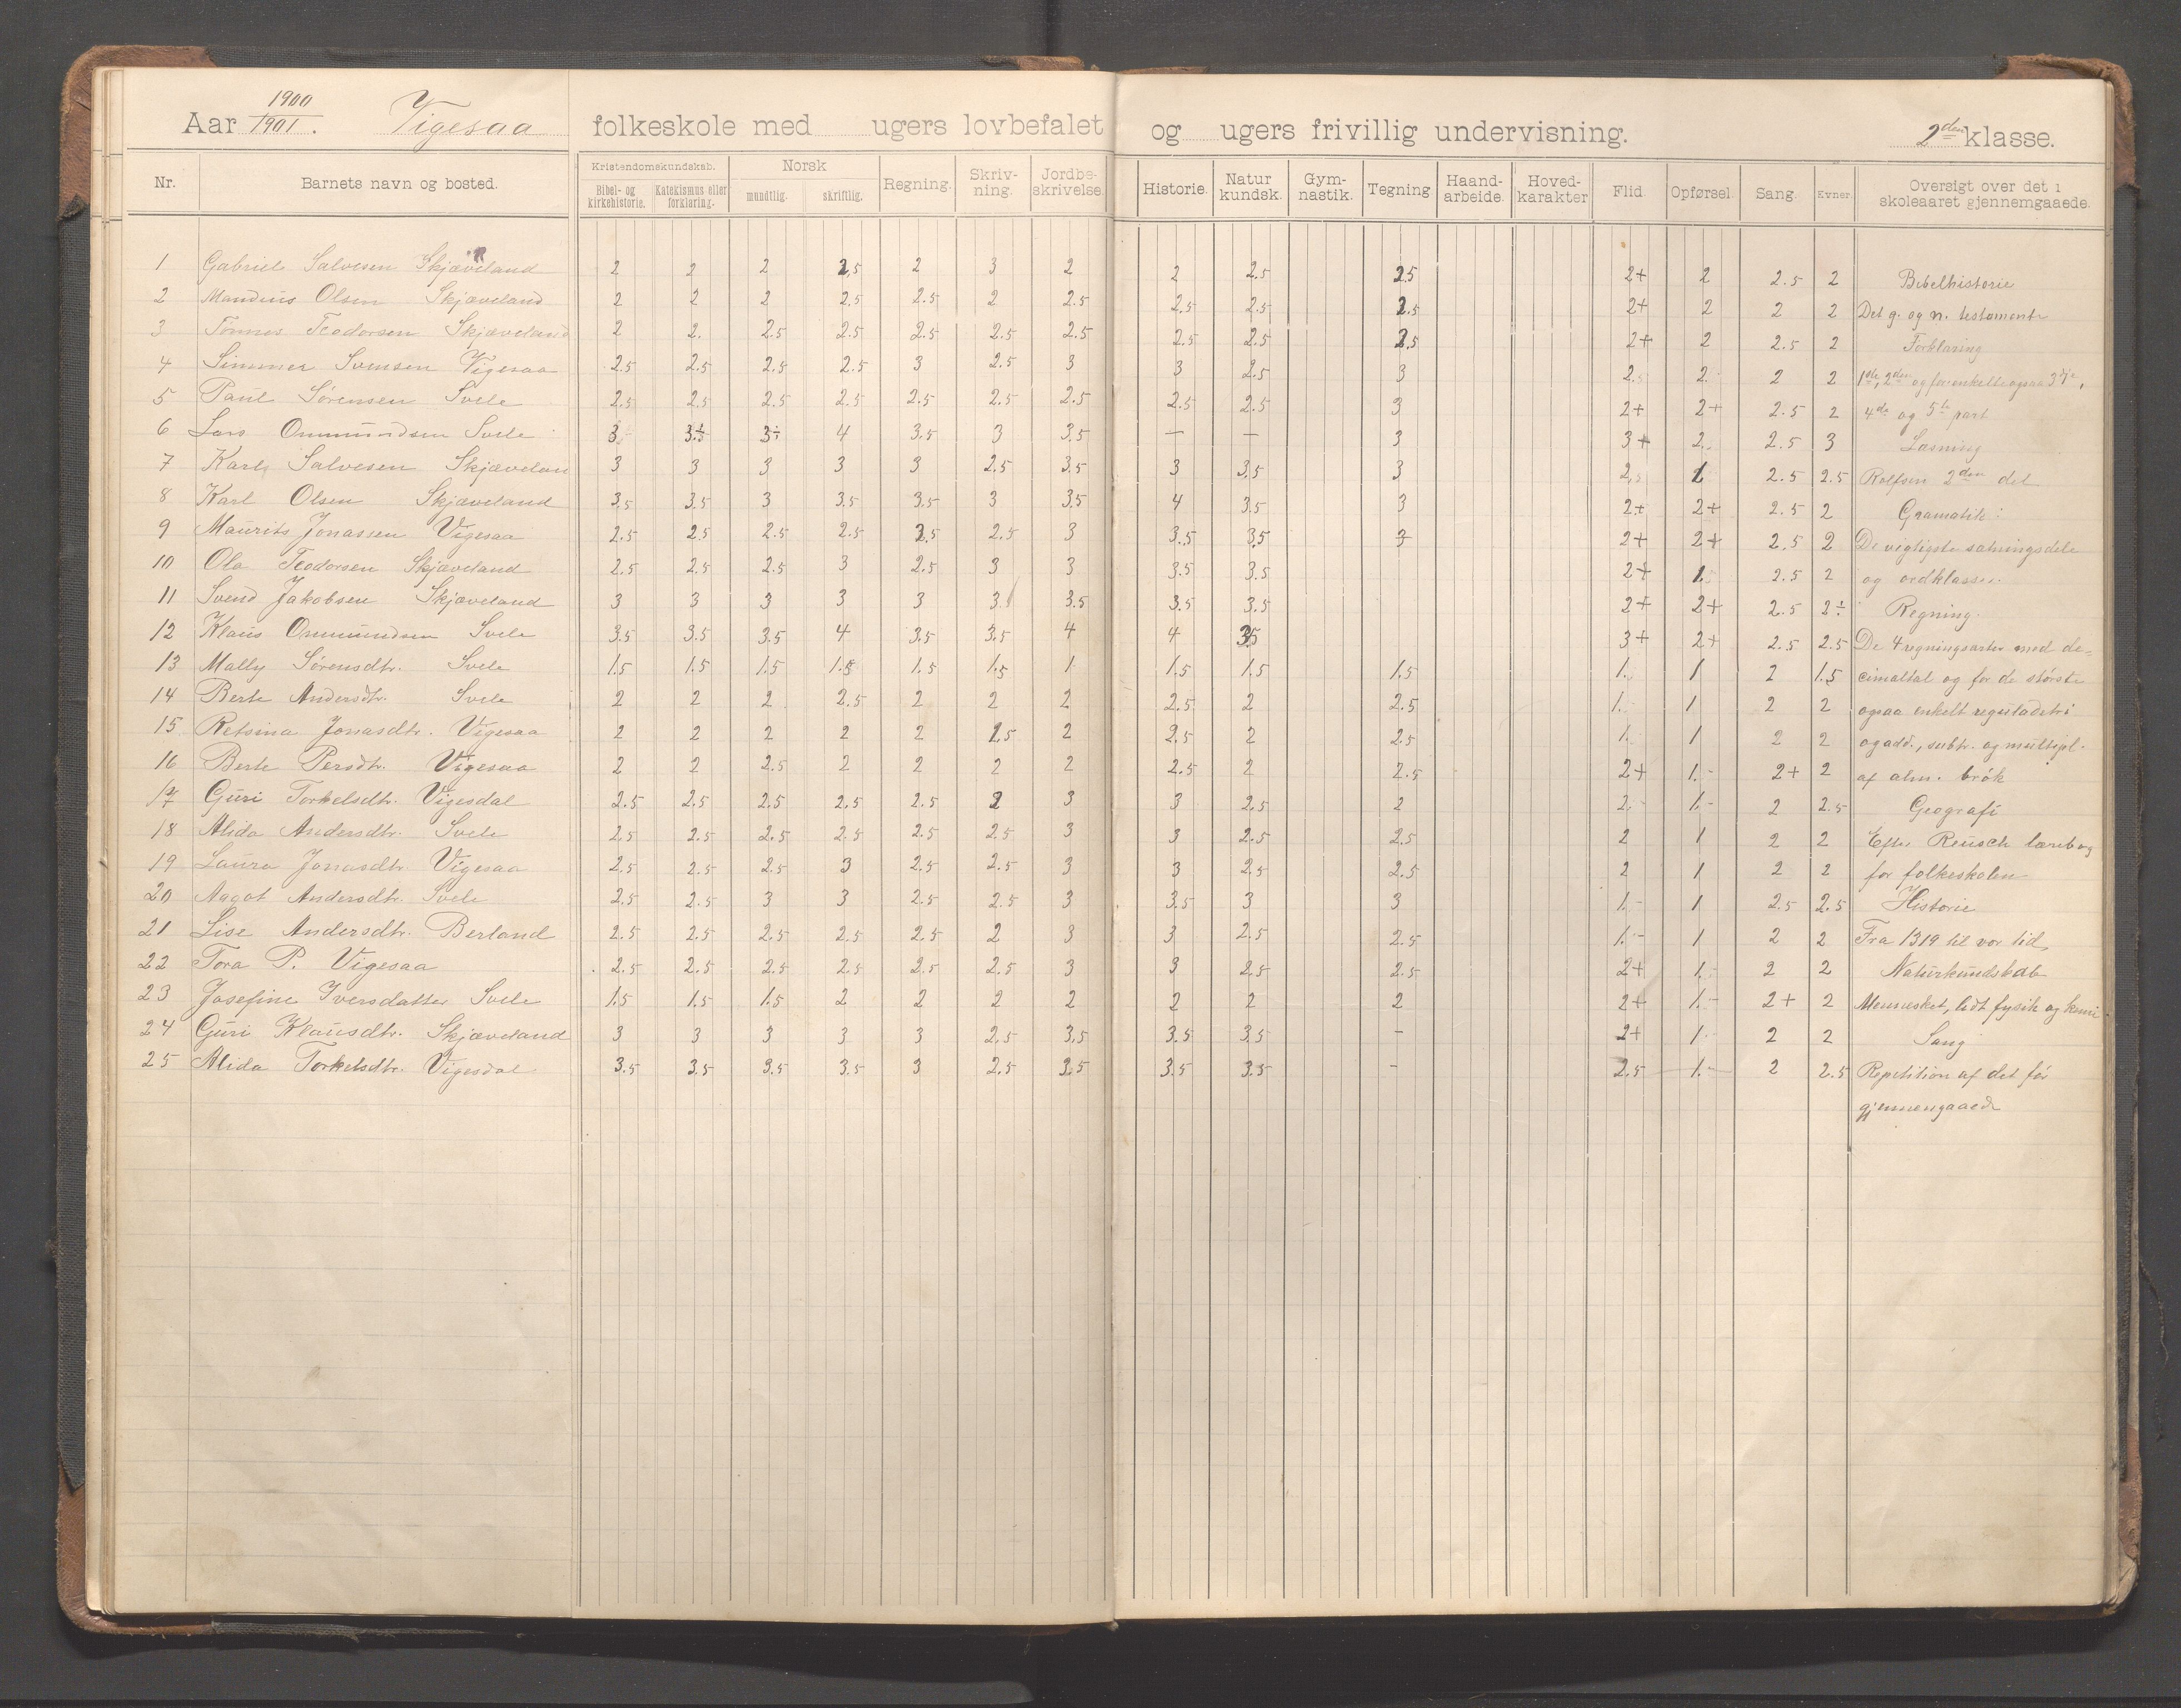 Aar 1900/1901. Vigesaa folkeskole med ugers lovbefalet og ugers frivillig undervisning. 2den klasse.
Nr. Barnets navn og bosted. Kristendomskundskab. Bibel- og kirkehistorie. Katekismus eller forklaring. Norsk mundtlig. skriftlig. Regning. Skriv-ning. Jordbe-skrivelse. Historie. Natur kundsk. Gym-nastik. Tegning Haand-arbeide. Hoved-karakter Flid Opførsel. Sang. Evner. Oversigt over det i skoleaaret gjennemgaaede.
1 Gabriel Salvesen Skjæveland 2 2 2 2,5 2 3 2 2 2.5 2.5 2+ 2 2.5 2 Bibelhistorie
2 Mandius Olsen Skjæveland 2 2 2 2.5 2.5 2 2.5 2.5 2.5 2.5 2+ 2 2 2 Det g. og n. testamente
3 Tønnes Teodorsen Skjæveland 2 2. 2.5 2.5 2.5 2.5 2.5 2.5 2.5 2.5 2+ 2 2.5 2 Forklaring
4 Simmer Svensen Vigesaa 2.5 2.5 2.5 2.5 3 2.5 3 3 2.5 3 2. 2. 2 2 1ste, 2den og for enkelte ogsaa 3dje,
5 Paul Sørensen Svele 2.5 2.5 2.5 2.5 2.5 2.5 2.5 2.5 2.5 3 2+ 2+ 2.5 2 4de og 5te part
6 Lars Ommundsen Svele 3 3÷ 3÷ 4 3.5 3 3.5 — — 3 3+ 2. 2.5 3 Læsning
7 Karl Salvesen Skjæveland 3 3 3 3 3 2.5 3.5 3 3.5 3 2. 1 2.5 2.5 Rolfsen 2den del
8 Karl Olsen Skjæveland 3.5 3.5 3 3.5 3.5 3 3.5 4 3.5 3 2+ 2+ 2.5 2 Gramatik:
9 Maurits Jonassen Vigesaa 2.5 2.5 2.5 2.5 3.5 2.5 3 3.5 3.5 3 2+ 2+ 2.5 2 De vigtigste sætningsdele
10 Ola Teodorsen Skjæveland 2.5 2.5 2.5 3 2.5 3 3 3.5 3.5 2+ 1. 2.5 2 og ordklasser.
11 Svend Jakobsen Skjæveland 3 3 3 3 3 3 3.5 3.5 3.5 2+ 2+ 2.5 2÷ Regning.
12 Klaus Ommundsen Svele 3.5 3.5 3.5 4 3.5 3.5 4 4 3.5 3+ 2+ 2.5 2.5 De 4 regningsarter med de=
13 Mally Sørensdtr. Svele 1.5 1.5 1.5 1.5 1.5 1.5 1 1.5 1.5 1.5 1. 1 2 1.5 cimaltal og for de største
14 Berte Andersdtr. Svele 2 2 2 2.5 2 2 2 2.5 2 2.5 1. 1 2 2 ogsaa enkelt reguladetri
15 Retsina Jonasdtr. Vigesaa 2 2 2 2 2 2.5 2 2.5 2 2.5 1. 1 2 2 og add., subtr. og multipl.
16 Berte Persdtr. Vigesaa 2 2 2.5 2 2 2 2 2.5 2 2.5 2+ 1.- 2+ 2 af alm. brøk
17 Guri Torkelsdtr. Vigesdal 2.5 2.5 2.5 2.5 2.5 2 3 3 2.5 2 2.- 1.- 2 2.5 Geografi
18 Alida Andersdtr. Svele 2.5 2.5 2.5 2.5 2.5 2.5 3 3 2.5 2.5 2 1 2 2 Efter Reusch lærebog
19 Laura Jonasdtr. Vigesaa 2.5 2.5 2.5 3 2.5 2.5 3 3 2.5 2.5 2 1 2 2 for folkeskolen
20 Aagot Andersdtr. Svele 2.5 2.5 3 3 2.5 2.5 3 3.5 3 3 1.- 1 2.5 2.5 Historie
21 Lise Andersdtr. Berland 2.5 2.5 2.5 2.5 2.5 2 3 3 2.5 2.5 1.- 1 2 2 Fra 1319 til vor tid
22 Tora P. Vigesaa 2.5 2.5 2.5 2.5 2.5 2.5 3 3 2.5 2.5 2+ 1.- 2 2 Naturkundskab
23 Josefine Iversdatter Svele 1.5 1.5 1.5 2 2 2 2 2 2 2 2+ 1.- 2+ 2 Mennesket, lidt fysik og kemi
24 Guri Klausdtr. Skjæveland 3 3 3 3 3 2.5 3.5 3.5 3.5 - 2+ 1.- 2 2 Sang
25 Alida Torkelsdtr. Vigesdal 3.5 3.5 3.5 3.5 3 2.5 3.5 3.5 3.5 - 2.5 1.- 2 2.5 Repetition af det før
gjennemgaaede